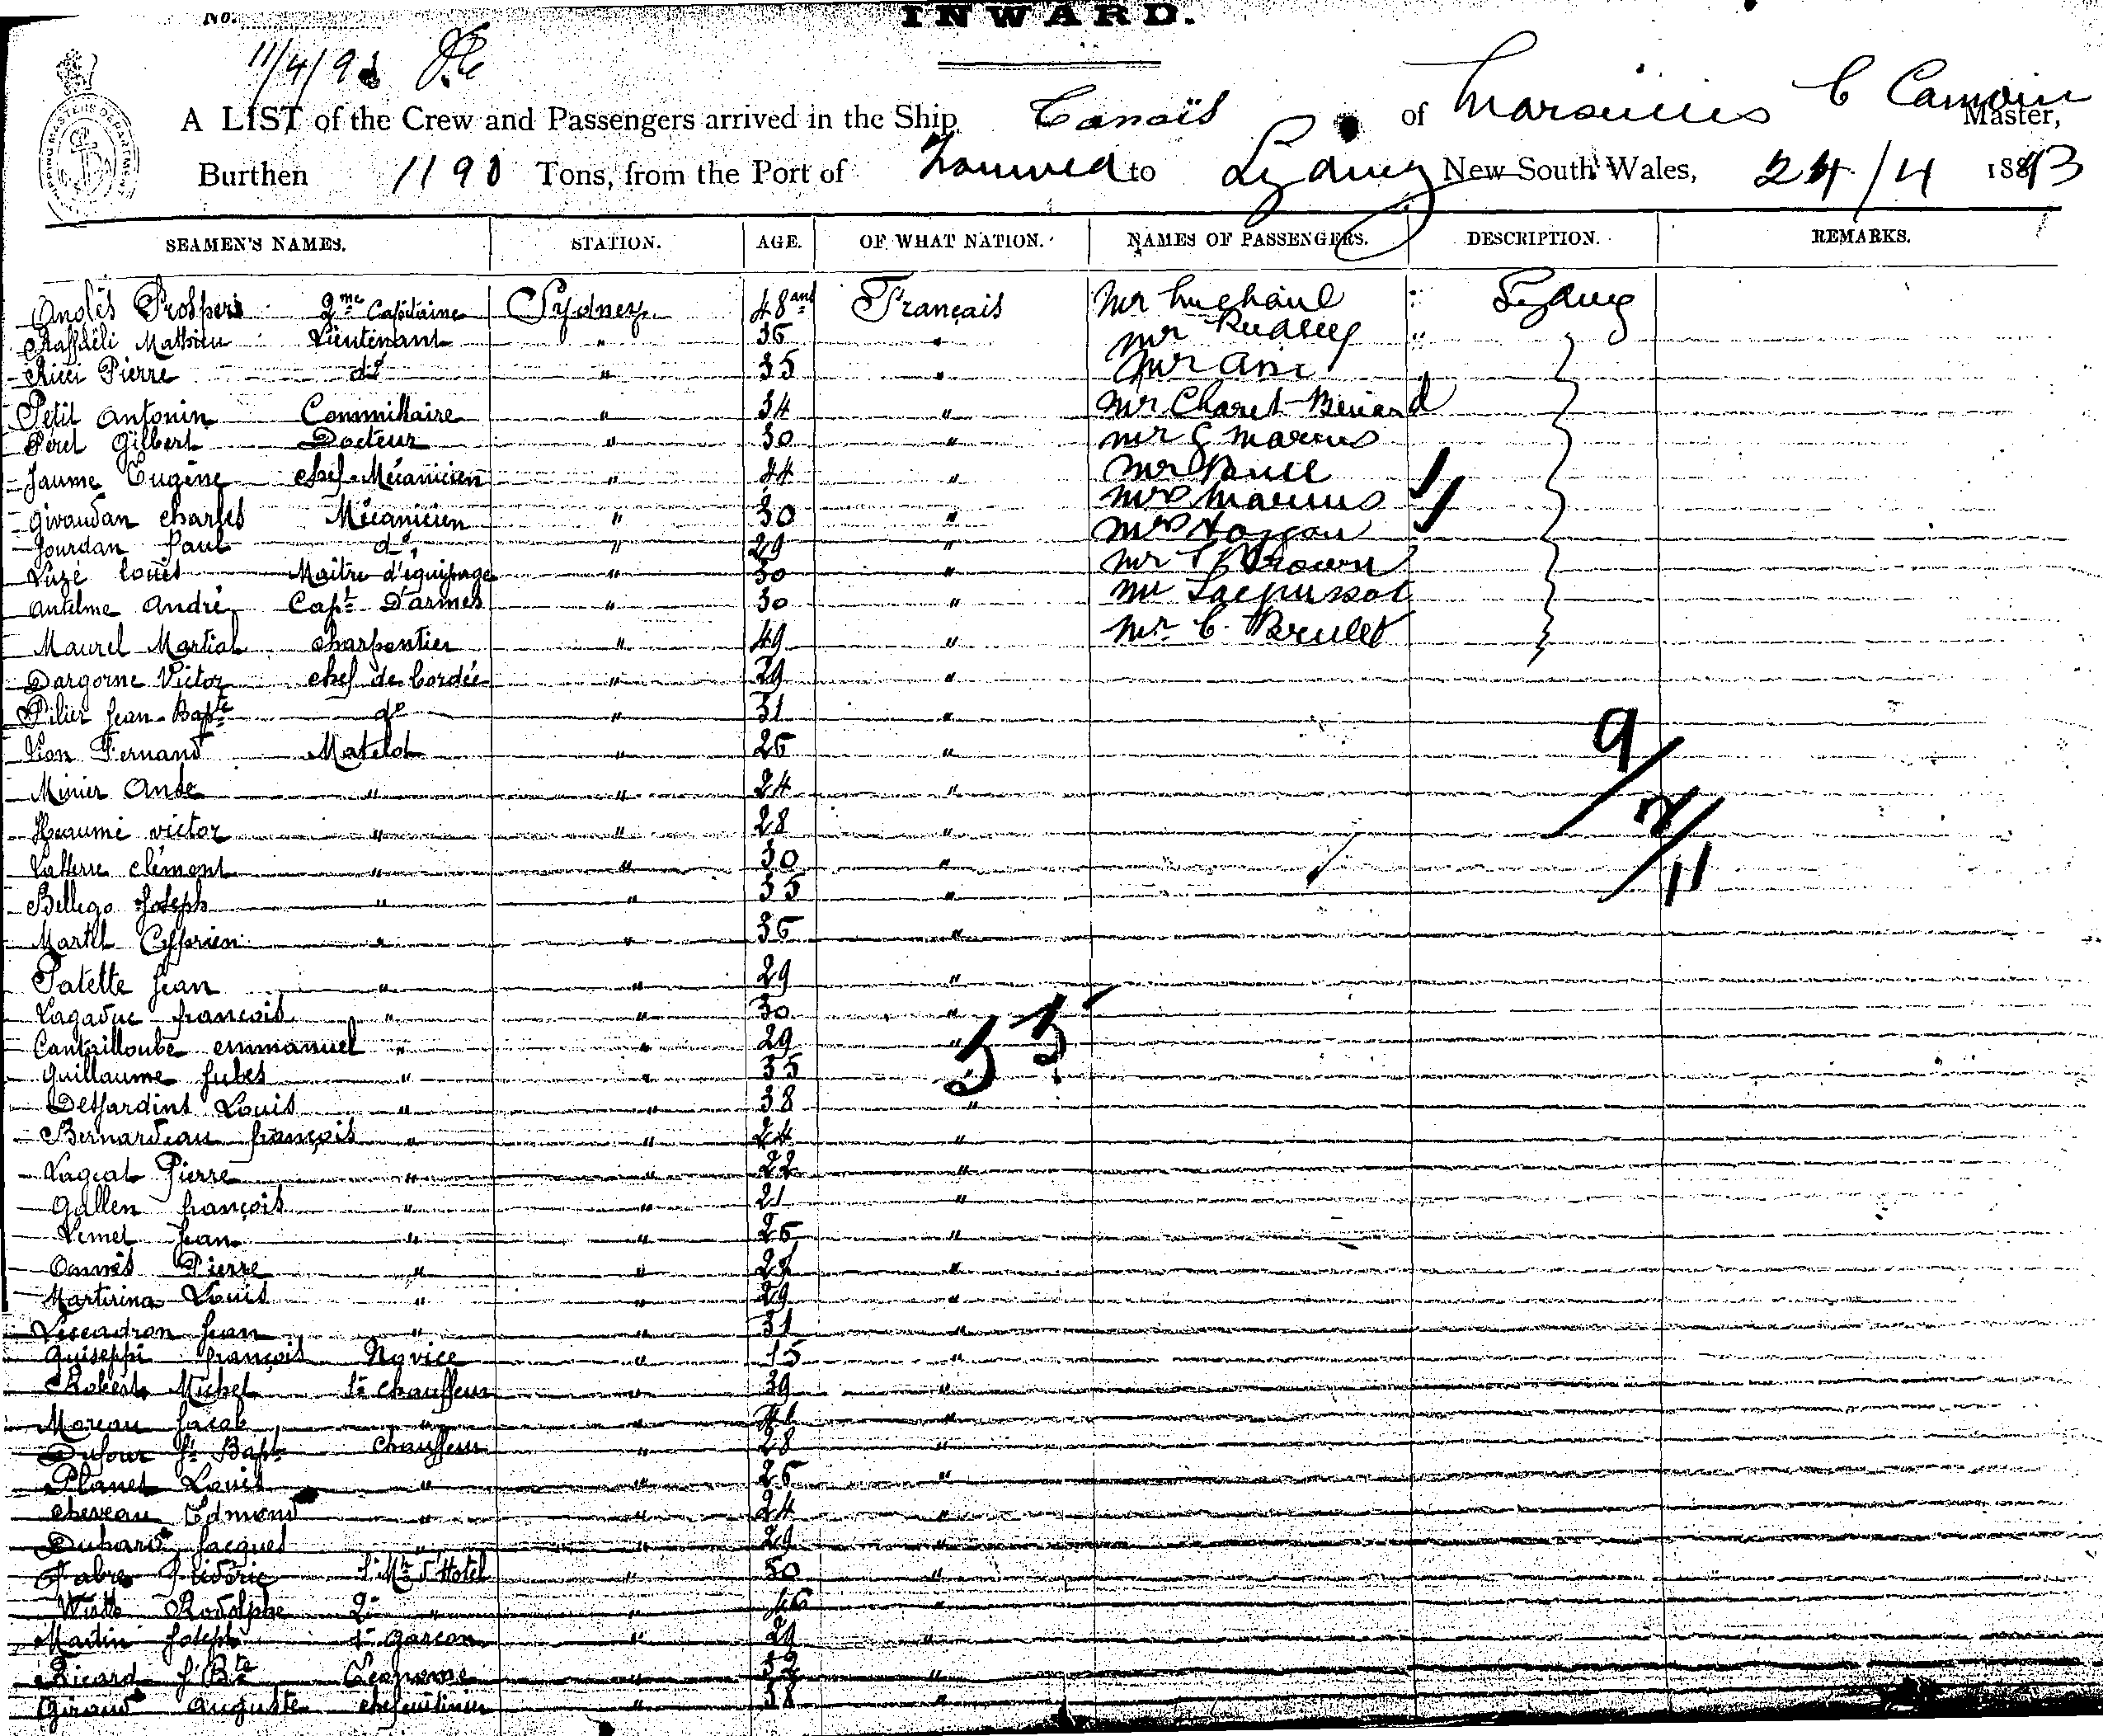 No.
INWARD.
11/4/93
A LIST of the Crew and Passengers arrived in the Ship Tanaïs of Marseilles C Camoin Master,
Burthen 1190 Tons, from the Port of Noumea to Sydney New South Wales, 24/4 1893
SEAMEN'S NAMES. STATION. AGE. OF WHAT NATION. NAMES OF PASSENGERS. DESCRIPTION. REMARKS.
Anglès Prosper 2me Capitaine Sydney 48 ans Français Mr Sydney
Raffaëli Mathieu Lieutenant " 36 " Mr "
Ricci Pierre do " 35 " Mr
Petit Antonin Commissaire " 34 " Mr Charet Benard
Péret Gilbert Docteur " 30 " Mr G Marcus
Jaume Eugène chef Mécanicien " 44 " Mr 1
Giraudan Charles Mécanicien " 30 " Mrs Marcus 1
Jourdan Paul do " 29 " Mrs
Luzé Louis Maitre d'équipage " 30 " Mr Brown
Antelme André Capt D'armes " 30 " Mr
Maurel Martial Charpentier " 49 " Mr C. Brulet
Dargorne Victor chef de bordée 29 "
Pilier Jean Bapte do " 31 "
Lion Fernand Matelot " 26 "
Minier " " 24 "
Heaumé Victor " " 28 "
Laterre Clément " " 30 "
Bellego Joseph " " 35 "
Martel Cyprien " " 36 "
Patette Jean " " 29 "
Lagaduc François " " 30 "
Cantailloube Emmanuel " " 29 "
Guillaume Jules " " 35 "
Desjardins Louis " " 38 "
Bernardeau François " " 24 "
Lageat Pierre " " 22 "
Gallen François " " 21 "
Lemet Jean " " 26 "
Onnés Pierre " " "
Martirina Louis " " 29 "
Lescadron Jean " " 31 "
Guiseppi François Novice " 15 "
Robert Michel 1r Chauffeur " 39 "
Moreau Jacob " " "
Dufour Jn Bapt Chauffeur " 28 "
Planet Louis " " 26 "
Cheveau Edmond " " 24 "
Duhard Jacques " " 29 "
Fabre Fréderic 1r Mtre d'Hotel " 50 "
Rodolphe 2e " " 46 "
Martin Joseph garçon " 29 "
Ricard J Bte Econome " "
Giraud Auguste chef cuisinier " 38 "
9/2/11
53